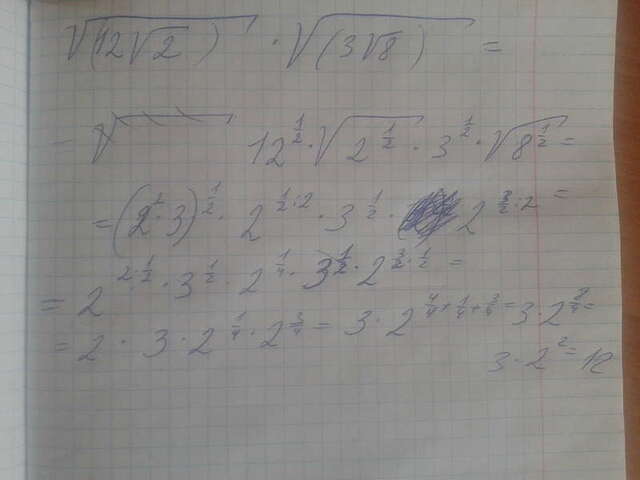 √(12√2) · √(3√8) =
12^{1/2} · √2^{1/2} · 3^{1/2} · √8^{1/2} =
= (2² · 3)^{1/2} · 2^{1/2:2} · 3^{1/2} · 2^{3/2:2} =
= 2^{2·1/2} · 3^{1/2} · 2^{1/4} · 3^{1/2} · 2^{3/2·1/2} =
= 2 · 3 · 2^{1/4} · 2^{3/4} = 3 · 2^{4/4+1/4+3/4} = 3 · 2^{8/4} =
3 · 2² = 12